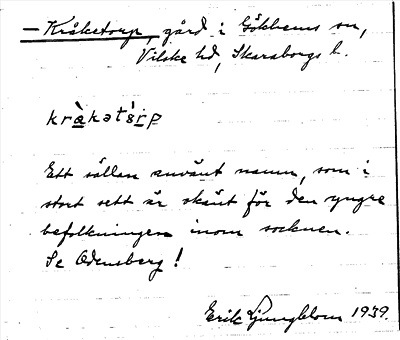 — Kråketorp, gård i Gökhems sn,
Vilske hd, Skaraborgs l.
Ett sällan använt namn, som i
stort sett är okänt för den yngre
befolkningen inom socknen.
Se Odensberg!
Erik Ljungblom 1939.